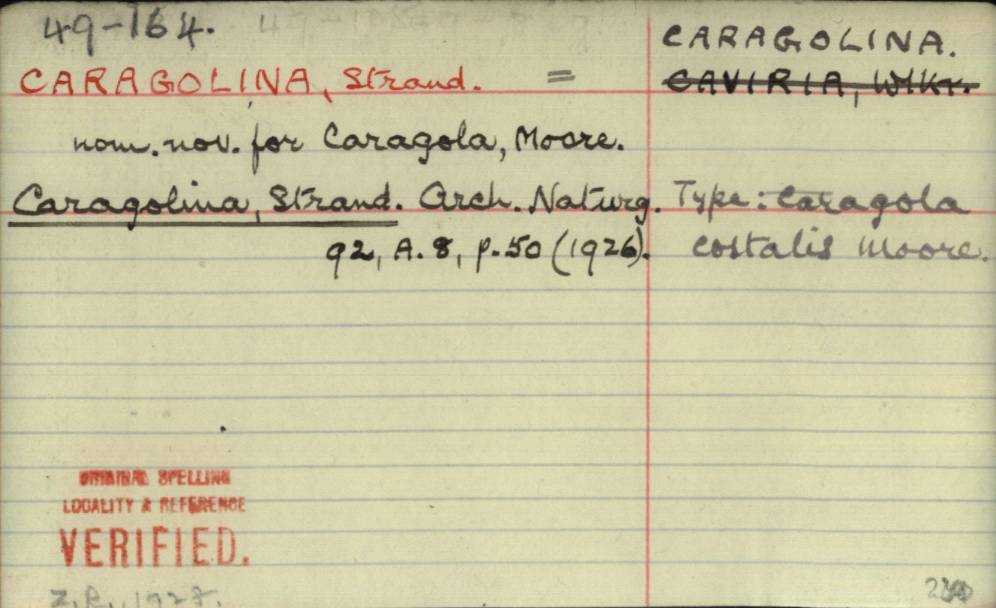 49-164.
CARAGOLINA.
CARAGOLINA, Strand. = CAVIRIA, WlKr.
nom. nov. for Caragola, Moore.
Caragolina, Strand. Arch. Naturg. Type: Caragola
92, A. 8, p. 50 (1926). costalis Moore.
ORIGINAL SPELLING
LOCALITY & REFERENCE
VERIFIED.
Z.R., 1928.